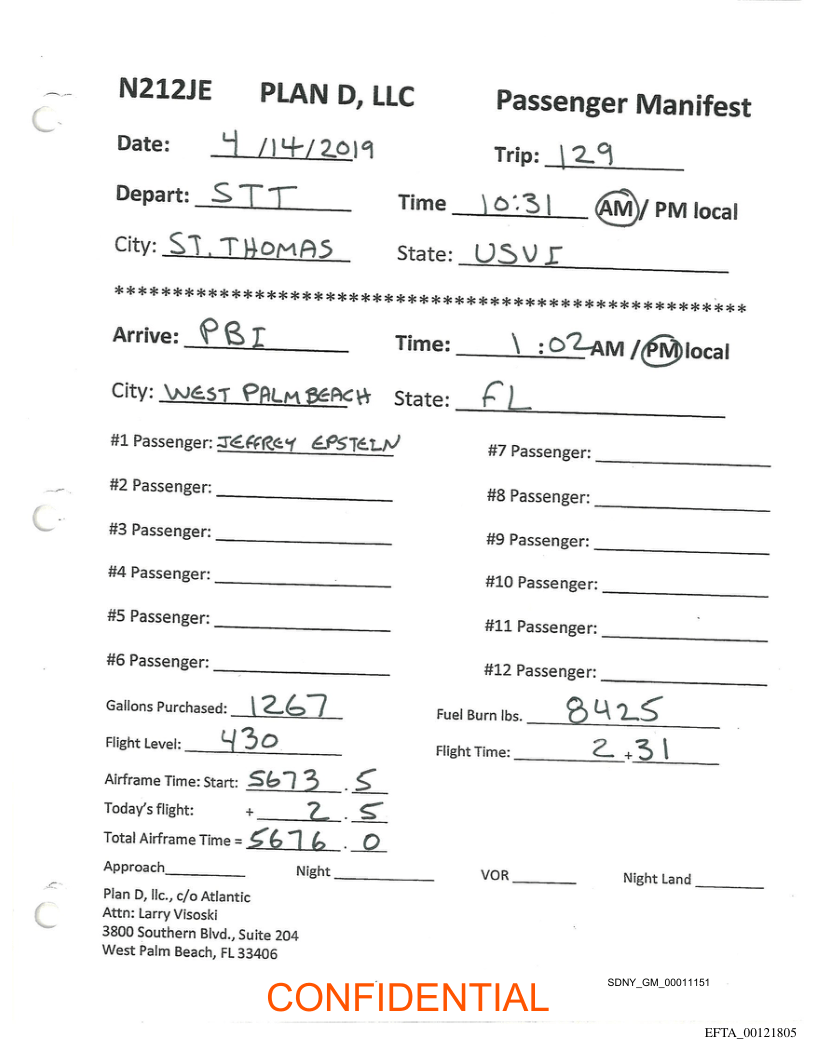 N212JE PLAN D, LLC Passenger Manifest
Date: 4/14/2019 Trip: 129
Depart: STT Time 10:31 AM / PM local
City: ST. THOMAS State: USVI
*******************************************************
Arrive: PBI Time: 1:02 AM / PM local
City: WEST PALM BEACH State: FL
#1 Passenger: JEFFREY EPSTEIN #7 Passenger:
#2 Passenger: #8 Passenger:
#3 Passenger: #9 Passenger:
#4 Passenger: #10 Passenger:
#5 Passenger: #11 Passenger:
#6 Passenger: #12 Passenger:
Gallons Purchased: 1267 Fuel Burn lbs. 8425
Flight Level: 430 Flight Time: 2 + 31
Airframe Time: Start: 5673 . 5
Today's flight: + 2 . 5
Total Airframe Time = 5676 . 0
Approach Night VOR Night Land
Plan D, llc., c/o Atlantic
Attn: Larry Visoski
3800 Southern Blvd., Suite 204
West Palm Beach, FL 33406
SDNY_GM_00011151
CONFIDENTIAL
EFTA_00121805